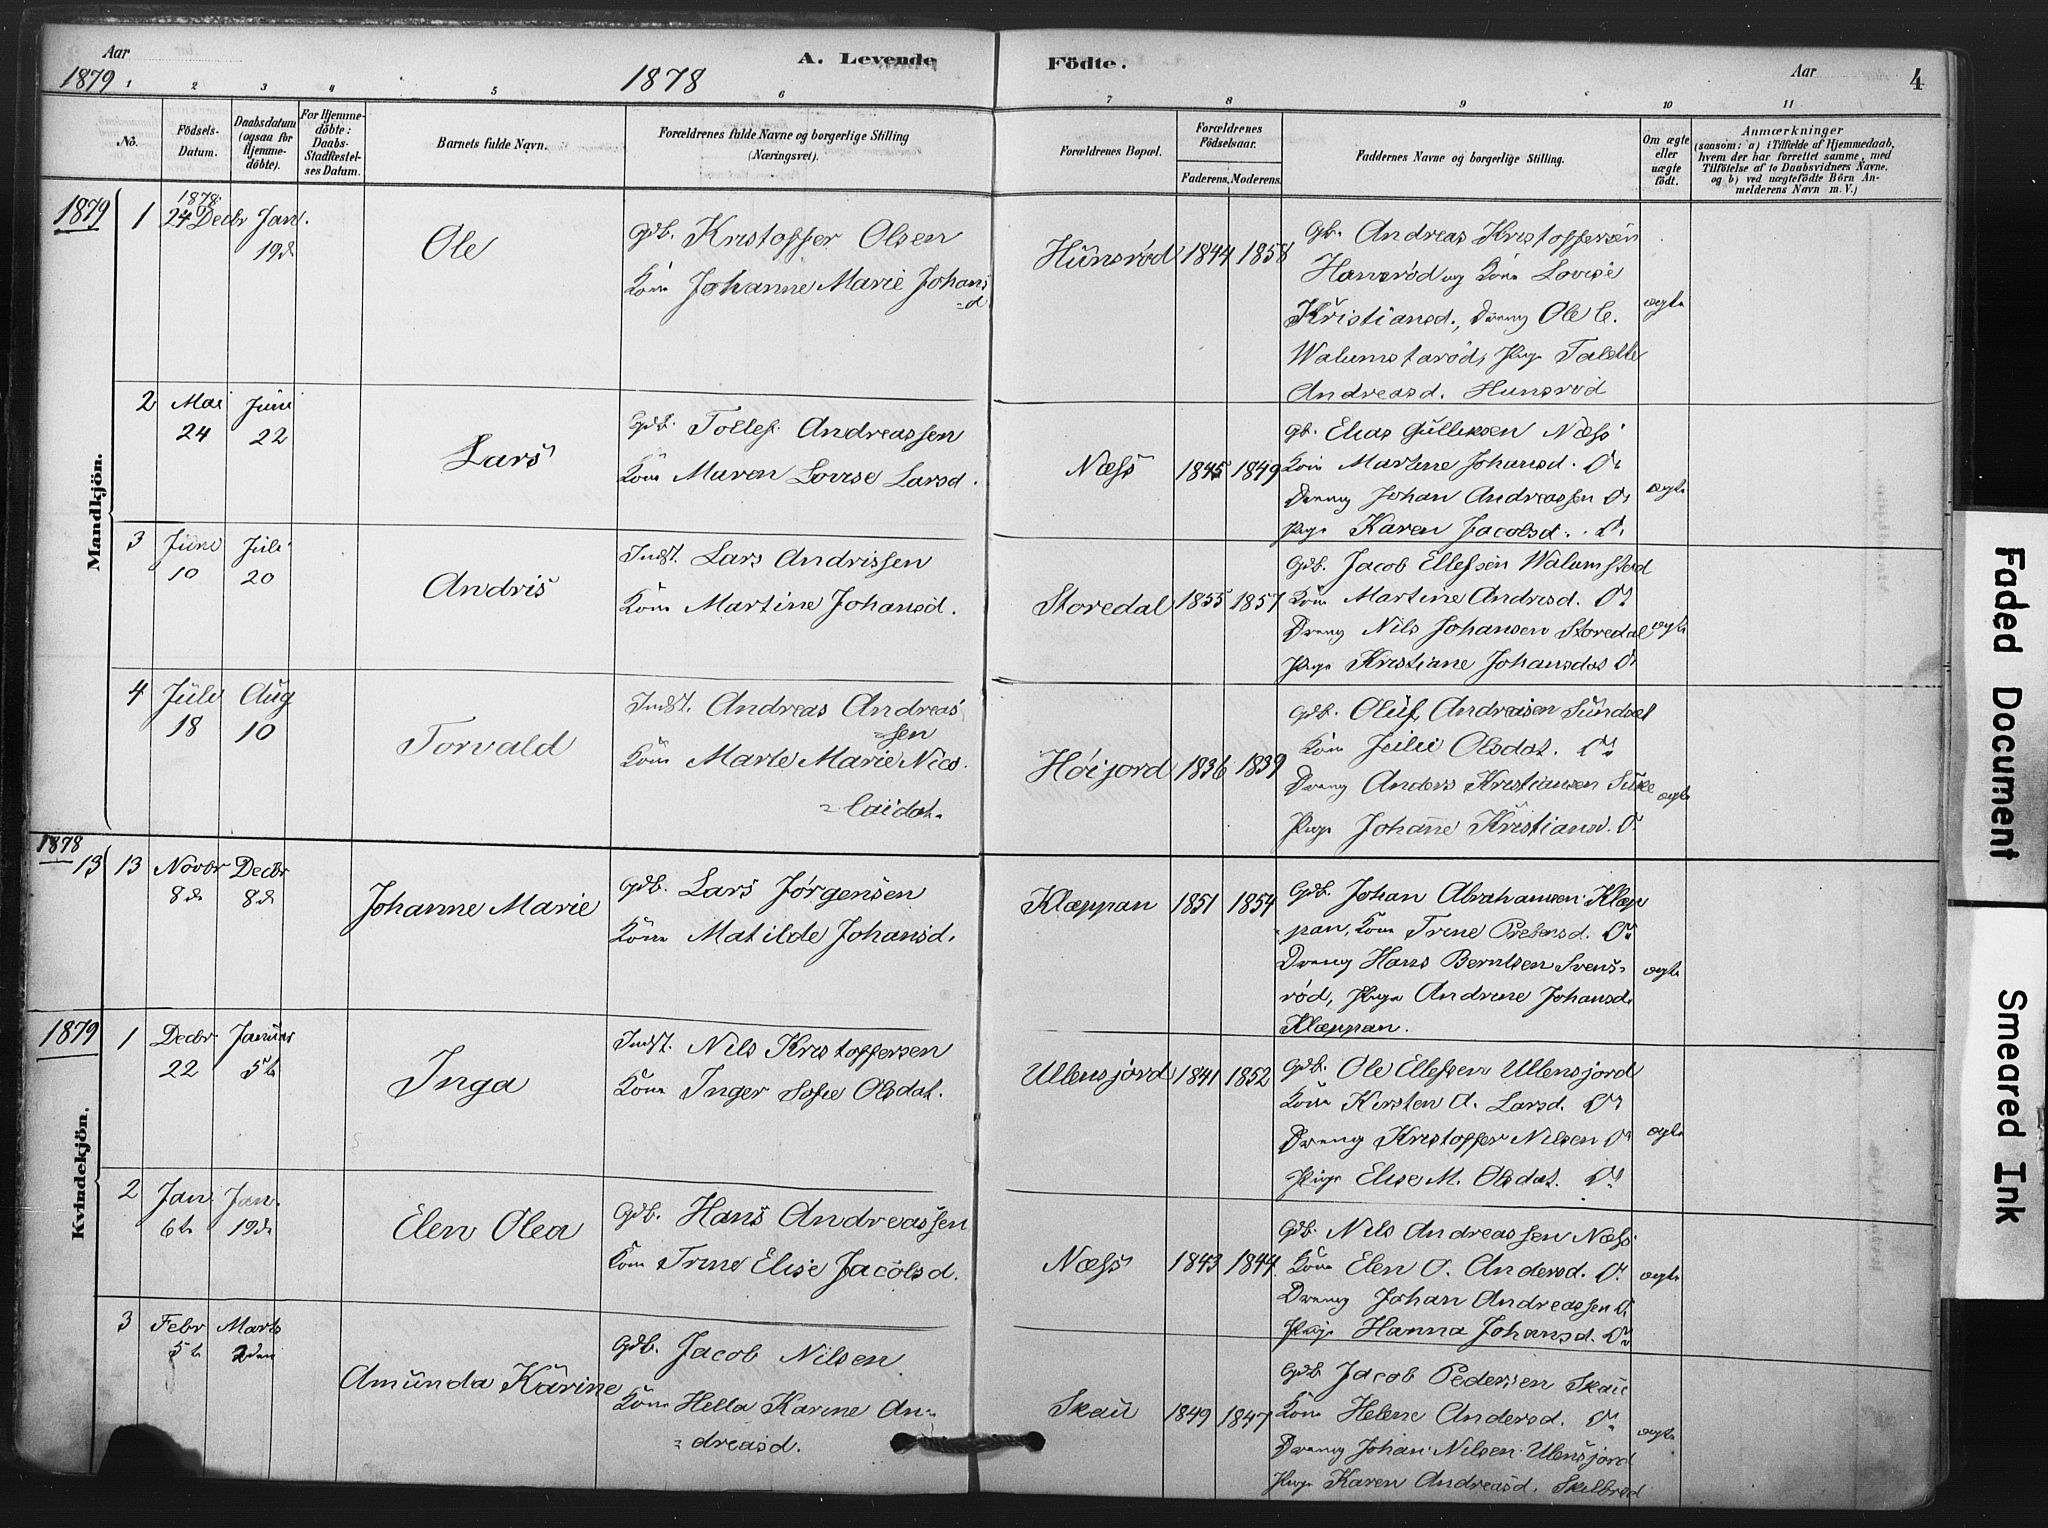 Aar
1879
1878
A. Levende
Födte.
Aar
4
1 2 3 4 5 6 7 8 9 10 11
No.
Födsels-Datum.
Daabsdatum (ogsaa for Hjemmedöbte).
For Hjemmedöbte: Daabs-Stadfæstelses Datum.
Barnets fulde Navn.
Forældrenes fulde Navne og borgerlige Stilling (Næringsvei).
Forældrenes Bopæl.
Forældrenes Födselsaar.
Faderens. Moderens.
Faddernes Navne og borgerlige Stilling.
Om ægte eller uægte födt.
Anmærkninger
(saasom: a) i Tilfælde af Hjemmedaab,
hvem der har forrettet samme, med
Tilföielse af to Daabsvidners Navne,
og b) ved uægtefödte Börn An-
melderens Navn m. V.)
Mandkjön.
1879
1 1878 24 Decbr Jan. 19d
Ole
Gdb. Kristoffer Olsen
Kone Johanne Marie Johans
=d
Hünsrød 1844 1858
Gb. Andreas Kristoffersen
Hansrød og Kone Lovise
Kristiansd., Dreng Ole C.
Walumstarød, Pige Talette
Andreasd. Hunsrød
ægte
2 Mai 24 Juni 22
Lars
Gdb. Tollef Andreassen
Kone Maren Lovise Larsd.
Næss 1845 1849
gb. Elias Gulliksen Næss
Kone Martine Johansd. Do
Dreng Johan Andreassen Do
Pige Karen Jacobsd. Do
ægte
3 Juni 10 Juli 20
Andris
Indst. Lars Andrissen
Kone Martine Johansd.
Storedal 1855 1857
Gdb. Jacob Ellefsen Walumstad
Kone Martine Andresd. Do
Dreng Nils Johansen Storedal
Pige Kristiane Johansdat Do
ægte
4 Juli 18 Aug 10
Torvald
Indst. Andreas Andreas
=sen
Kone Marte Marie Nico
=laidat.
Høijord 1836 1839
Gdb. Oluf Andreasen Sundset
Kone Julie Olsdat. Do
Dreng Anders Kristiansen
Pige Johanne Kristiansd. Do
ægte
Kvindekjön.
1878
13 13 Novbr 8de Decbr 8de
Johanne Marie
Gdb. Lars Jørgensen
Kone Matilde Johansd.
Klæppan 1851 1854
Gdb. Johan Abrahamsen Klæp
pan, Kone Trine Prebensd. Do
Dreng Hans Berntsen Svens-
rød, Pige Andrine Johansd.
Klæppan.
ægte
1879
1 Decbr 22 Januar 5te
Inga
Indst. Nils Kristoffersen
Kone Inger Sofie Olsdat.
Ullensjord 1841 1852
Gdb. Ole Ellefsen Ullensjord
Kone Kirsten A. Larsd. Do
Dreng Kristoffer Nilsen Do
Pige Elise M. Olsdat. Do
ægte
2 Jan 6te Jan. 19de
Elen Olea
Gdb. Hans Andreassen
Kone Trine Elise Jacobsd.
Næss 1843 1844
Gdb. Nils Andreassen Næss
Kone Elen O. Andersd. Do
Dreng Johan Andreassen Do
Pige Hanna Johansd. Do
ægte
3 Febr 5te Marts 2den
Amunda Karine
Gdb. Jacob Nilsen
Kone Hella Karine An-
=dreasd.
Skau 1849 1847
Gdb Jacob Pedersen Skau
Kone Helene Andersd. Do
Dreng Johan Nilsen Ullensjord
Pige Karen Andreasd. Skilbred
ægte
Faded Document
Smeared Ink